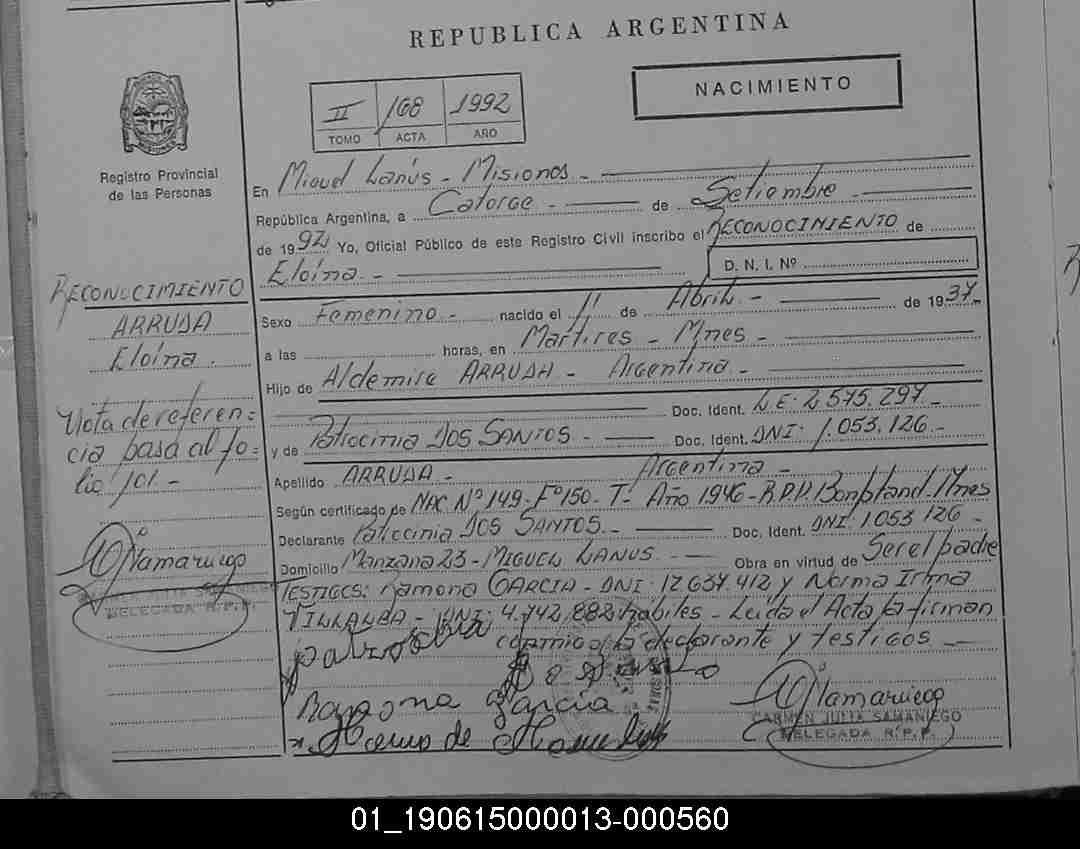 REPUBLICA ARGENTINA
NACIMIENTO
II 168 1992
TOMO ACTA AÑO
Registro Provincial
de las Personas
En Miguel Lanús - Misiones -
República Argentina, a Catorce - de Setiembre
de 1992 Yo, Oficial Público de este Registro Civil inscribo el RECONOCIMIENTO de
Eloína - D. N. I. Nº
Sexo Femenino - nacido el 11 de Abril - de 1937-
a las horas, en Martires - Mnes -
Hijo de Aldemiro ARRUDA - Argentina -
Doc. Ident. L.E. 2.575.297-
y de Patrocinia DOS SANTOS - Doc. Ident. DNI. 1.053.126-
Argentina -
Apellido ARRUDA -
Según certificado de NAC Nº 149-Fº150-T- Año 1946-R.P.P. Bonpland-Mnes
Declarante Patrocinia DOS SANTOS - Doc. Ident. DNI. 1.053.126-
Domicilio Manzana 23 - MIGUEL LANUS - Obra en virtud de Ser el padre
TESTIGOS: Ramona GARCIA - DNI. 12.637.412 y Norma Irma
VILLALBA - DNI. 4.742.882 hábiles - Leída el Acta la firman
conmigo la declarante y testigos -
Ramona Garcia
CARMEN JULIA SAMANIEGO
DELEGADA R.P.P.
RECONOCIMIENTO
ARRUDA
Eloína.
Nota de referen=
cia pasa al fo=
lio 101 -
CARMEN JULIA SAMANIEGO
DELEGADA R.P.P.
01_190615000013-000560